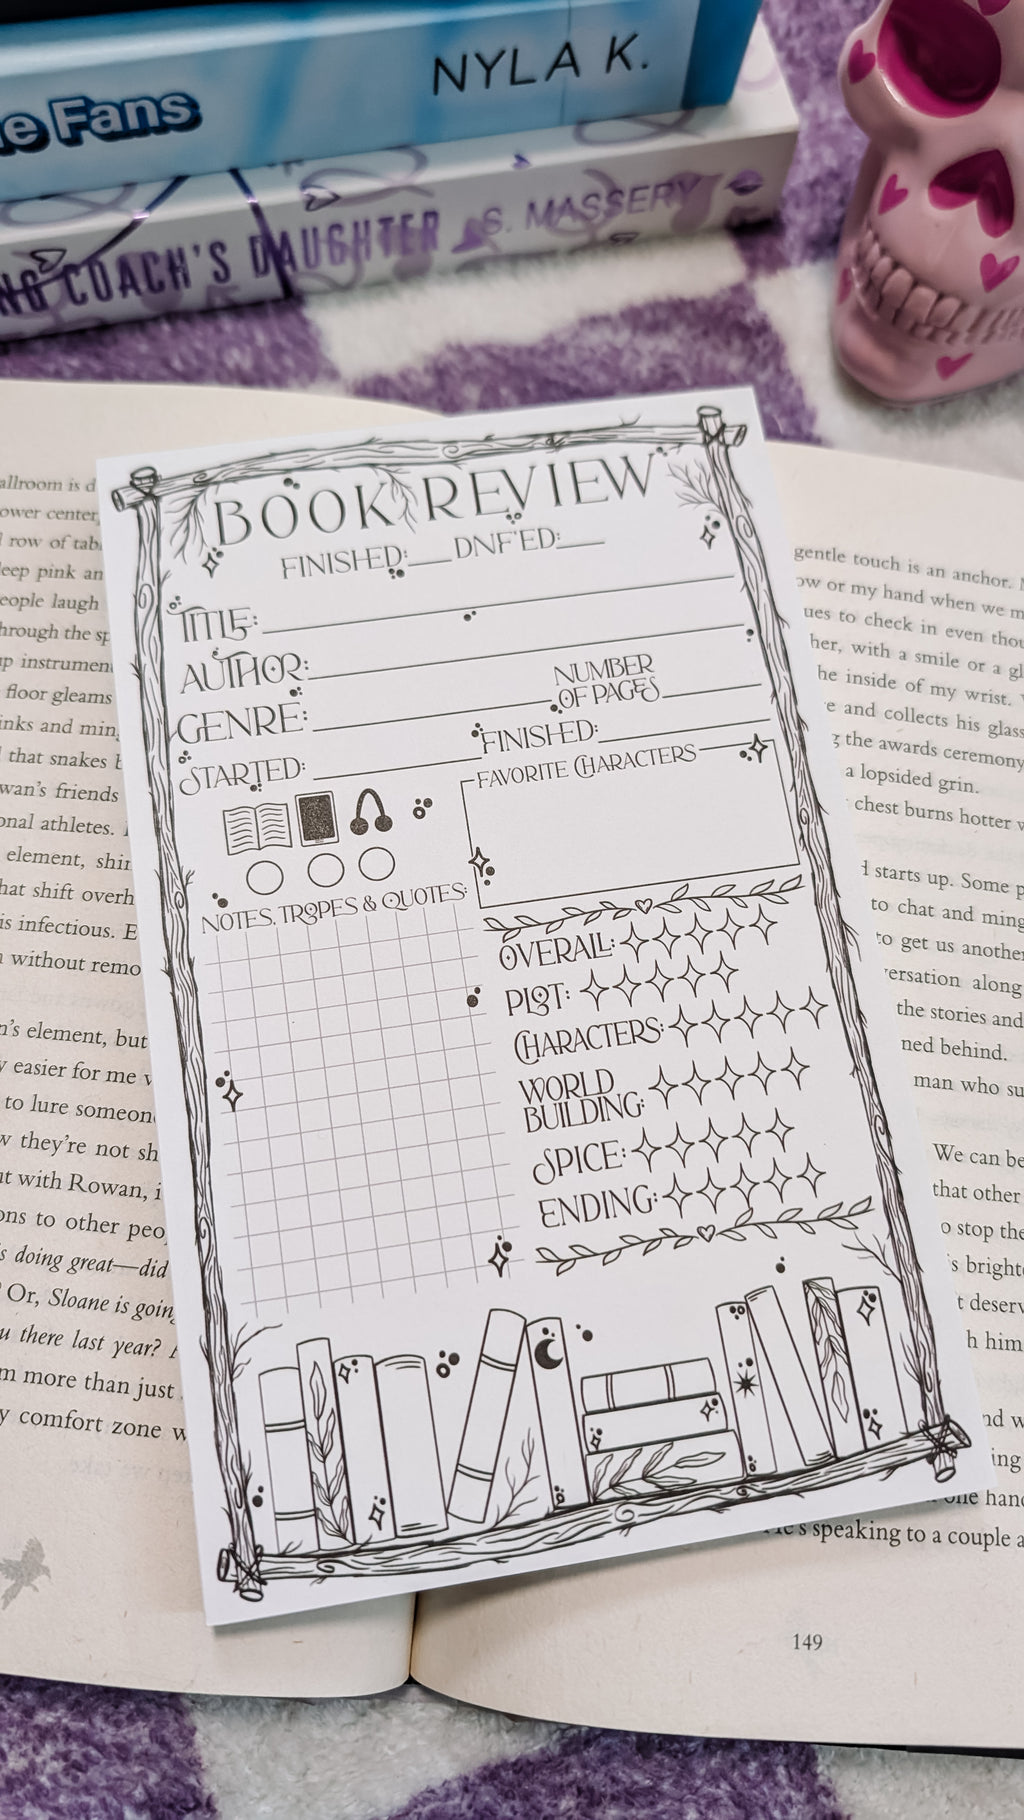 NYLA K.
e Fans
COACH'S DAUGHTER S. MASSERY
BOOK REVIEW
FINISHED:__DNF'ED:__
TITLE:
AUTHOR:
GENRE:
NUMBER
OF PAGES
STARTED:
FINISHED:
FAVORITE CHARACTERS
NOTES, TROPES & QUOTES:
OVERALL:
PLOT:
CHARACTERS:
WORLD
BUILDING:
SPICE:
ENDING:
allroom is d
ower center
row of tab
eep pink an
eople laugh
hrough the sp
p instrumen
floor gleams
inks and min
that snakes b
wan's friends
onal athletes.
element, shi
hat shift overh
is infectious. E
without remo
n's element, but
y easier for me
to lure someon
w they're not sh
t with Rowan, i
ons to other peo
s doing great—did
Or, Sloane is goin
u there last year?
m more than just
y comfort zone w
gentle touch is an anchor.
ow or my hand when we m
ues to check in even thou
her, with a smile or a gl
he inside of my wrist.
e and collects his glass
g the awards ceremony
a lopsided grin.
chest burns hotter w
starts up. Some p
to chat and ming
to get us another
ersation along
the stories and
ned behind.
man who su
We can be
that other
o stop the
s brighte
t deserv
h him
nd w
ing
one hand
He's speaking to a couple a
149